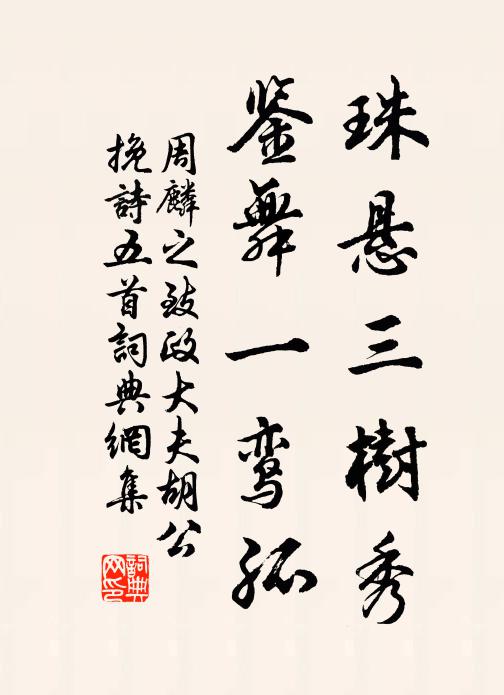 珠悬三樹秀
鉴舞一鸾孤
周麟之致政大夫胡公
挽詩五首詞典網集
詞典网印